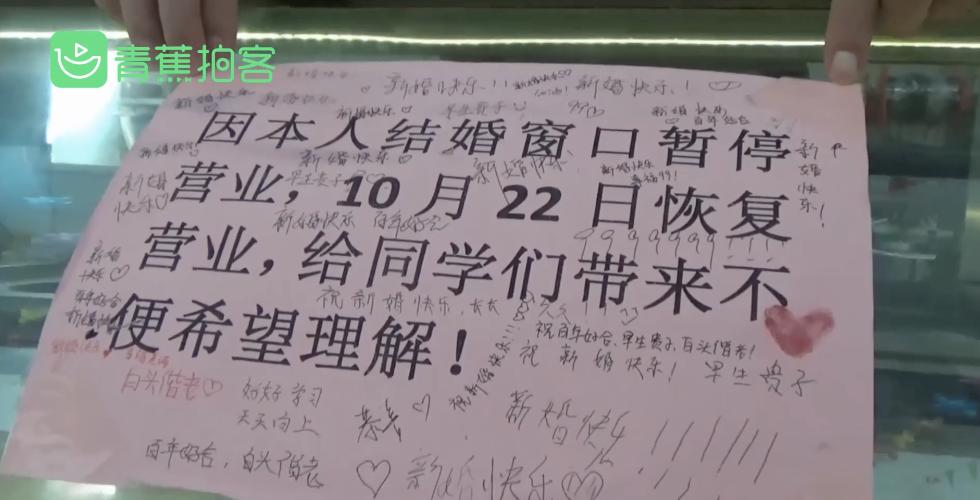 青蕉拍客
新婚快乐!!!
新婚快乐!
新婚快乐
新婚快乐
新婚快乐
早生贵子
新婚快乐
百年好合
因本人结婚窗口暂停
新婚快乐
新婚快乐
新婚快乐
新婚快乐
幸福99!
新婚快乐!
营业，10月22日恢复
早生贵子
新婚快乐
新婚快乐 百年好合
99999999!!!
营业，给同学们带来不
新婚快乐♡
百年好合
祝新婚快乐,长长久久
便希望理解！
祝新婚快乐!!!
祝百年好合、早生贵子、白头偕老!
祝 新婚快乐! 早生贵子
新婚快乐
白头偕老♡
好好学习
天天向上
新婚快乐!!!!!!
百年好合，白头偕老
新婚快乐